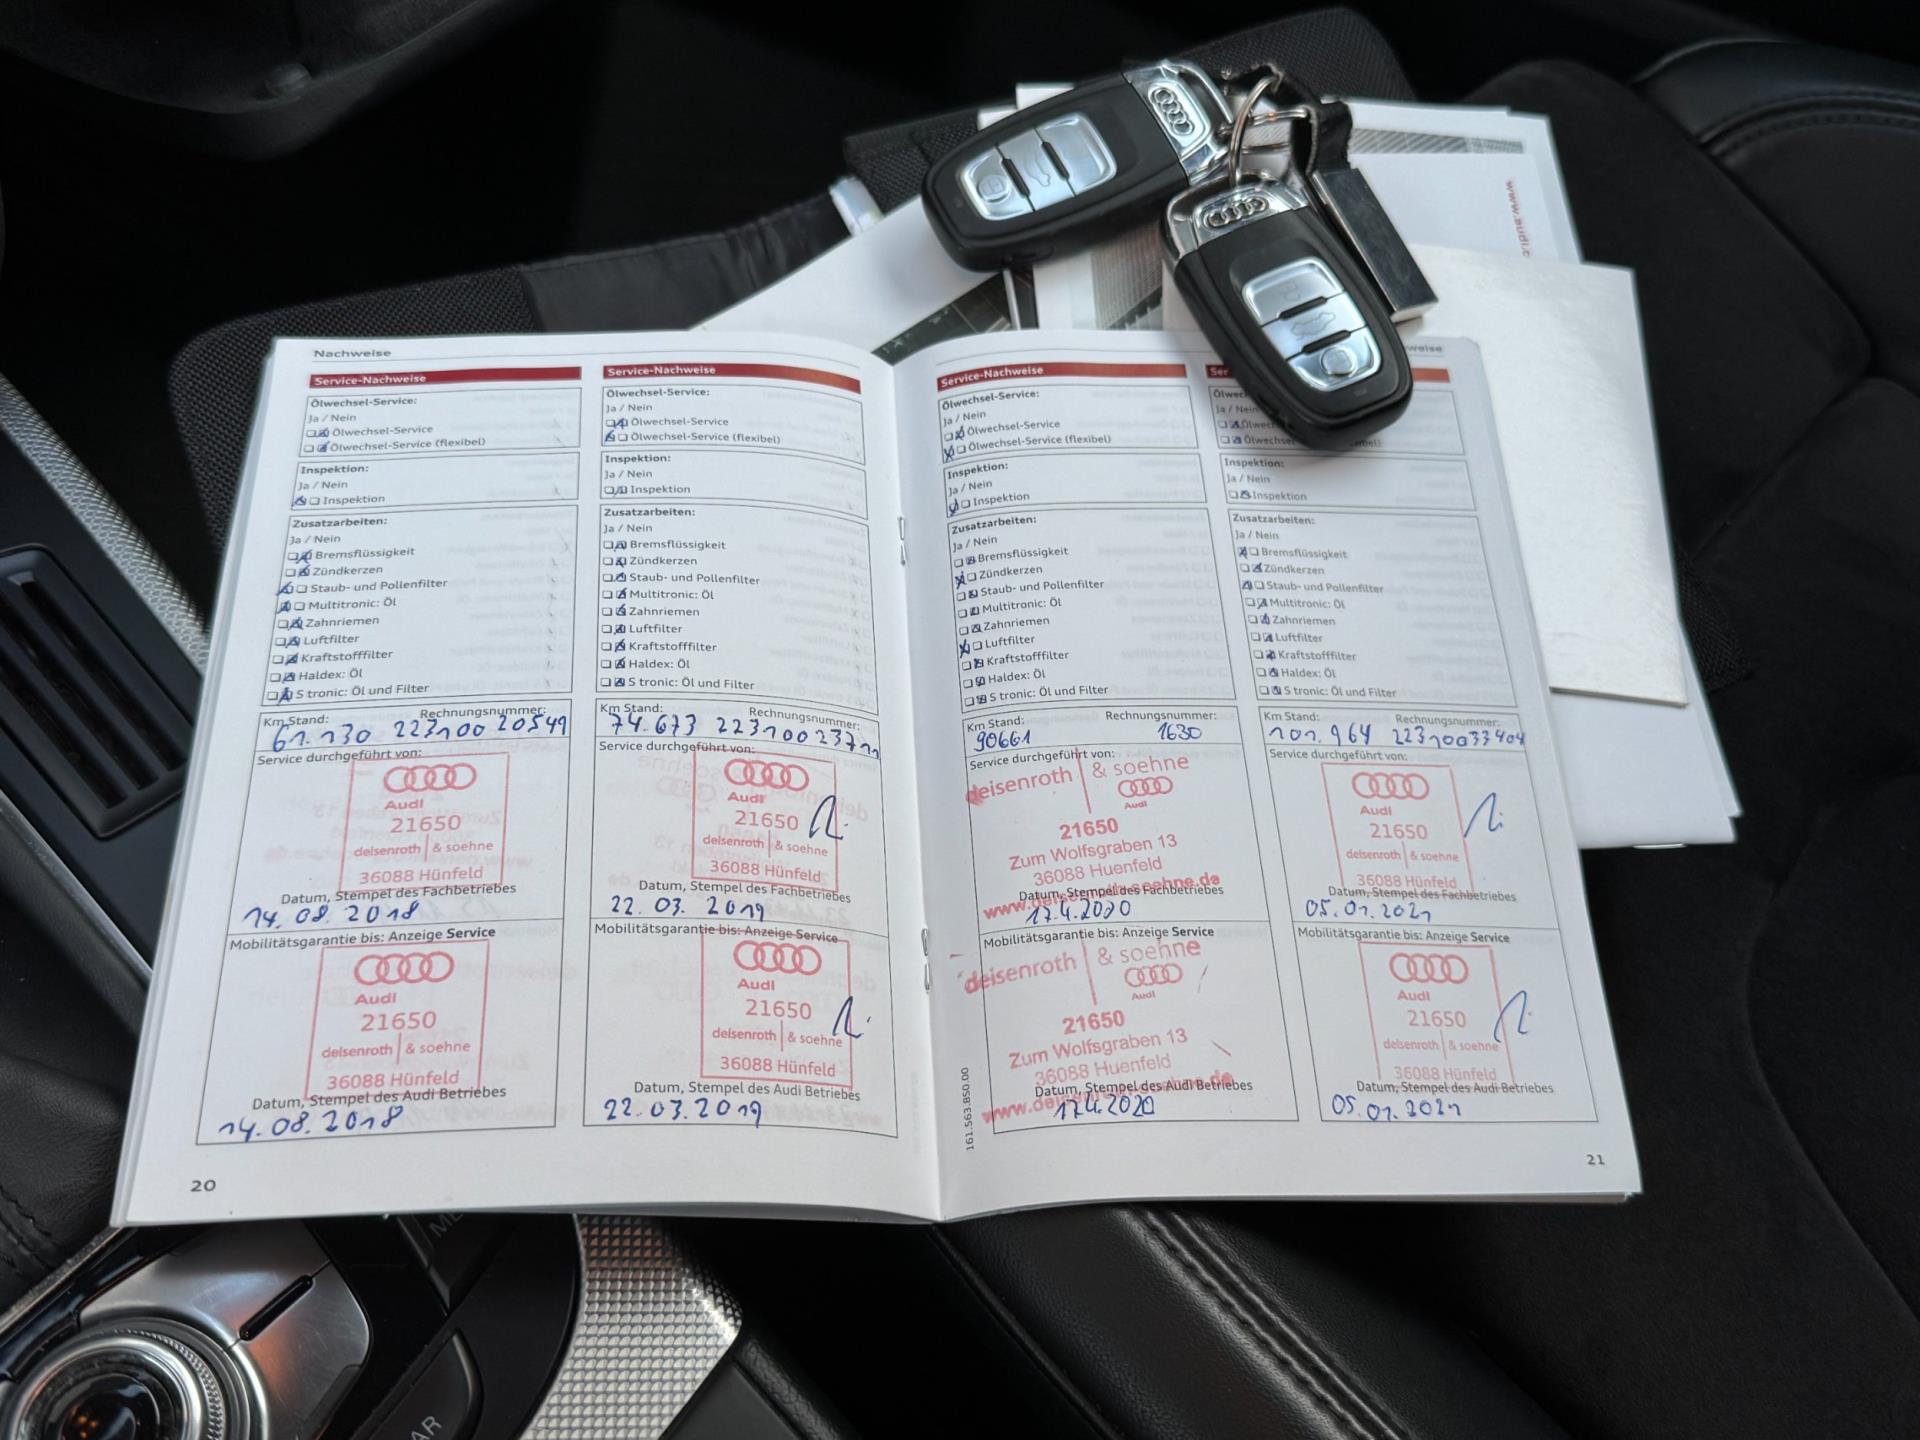 www.audi.c
Nachweise
Service-Nachweise
Ölwechsel-Service:
Ja / Nein
Ölwechsel-Service
Ölwechsel-Service (flexibel)
Inspektion:
Ja / Nein
Inspektion
Zusatzarbeiten:
Ja / Nein
Bremsflüssigkeit
Zündkerzen
Staub- und Pollenfilter
Multitronic: Öl
Zahnriemen
Luftfilter
Kraftstofffilter
Haldex: Öl
S tronic: Öl und Filter
Km Stand: Rechnungsnummer:
61.130 22310020549
Service durchgeführt von:
Audi
21650
deisenroth & soehne
36088 Hünfeld
Datum, Stempel des Fachbetriebes
14.08.2018
Mobilitätsgarantie bis: Anzeige Service
Audi
21650
deisenroth & soehne
36088 Hünfeld
Datum, Stempel des Audi Betriebes
14.08.2018
20
Service-Nachweise
Ölwechsel-Service:
Ja / Nein
Ölwechsel-Service
Ölwechsel-Service (flexibel)
Inspektion:
Ja / Nein
Inspektion
Zusatzarbeiten:
Ja / Nein
Bremsflüssigkeit
Zündkerzen
Staub- und Pollenfilter
Multitronic: Öl
Zahnriemen
Luftfilter
Kraftstofffilter
Haldex: Öl
S tronic: Öl und Filter
Km Stand: Rechnungsnummer:
74.673 22310023711
Service durchgeführt von:
Audi
21650
deisenroth & soehne
36088 Hünfeld
Datum, Stempel des Fachbetriebes
22.03.2019
Mobilitätsgarantie bis: Anzeige Service
Audi
21650
deisenroth & soehne
36088 Hünfeld
Datum, Stempel des Audi Betriebes
22.03.2019
Service-Nachweise
Ölwechsel-Service:
Ja / Nein
Ölwechsel-Service
Ölwechsel-Service (flexibel)
Inspektion:
Ja / Nein
Inspektion
Zusatzarbeiten:
Ja / Nein
Bremsflüssigkeit
Zündkerzen
Staub- und Pollenfilter
Multitronic: Öl
Zahnriemen
Luftfilter
Kraftstofffilter
Haldex: Öl
S tronic: Öl und Filter
Km Stand: Rechnungsnummer:
90661 1630
Service durchgeführt von:
deisenroth & soehne
Audi
21650
Zum Wolfsgraben 13
36088 Huenfeld
Datum, Stempel des Fachbetriebes
17.4.2020
Mobilitätsgarantie bis: Anzeige Service
deisenroth & soehne
Audi
21650
Zum Wolfsgraben 13
36088 Huenfeld
Datum, Stempel des Audi Betriebes
17.4.2020
161.563.BS0.00
weise
Ser
Ölwec
Ja / Nein
Ölwec
Ölwechse ibel)
Inspektion:
Ja / Nein
Inspektion
Zusatzarbeiten:
Ja / Nein
Bremsflüssigkeit
Zündkerzen
Staub- und Pollenfilter
Multitronic: Öl
Zahnriemen
Luftfilter
Kraftstofffilter
Haldex: Öl
S tronic: Öl und Filter
Km Stand: Rechnungsnummer:
101.964 22310033404
Service durchgeführt von:
Audi
21650
deisenroth & soehne
36088 Hünfeld
Datum, Stempel des Fachbetriebes
05.01.2021
Mobilitätsgarantie bis: Anzeige Service
Audi
21650
deisenroth & soehne
36088 Hünfeld
Datum, Stempel des Audi Betriebes
05.01.2021
21
AR